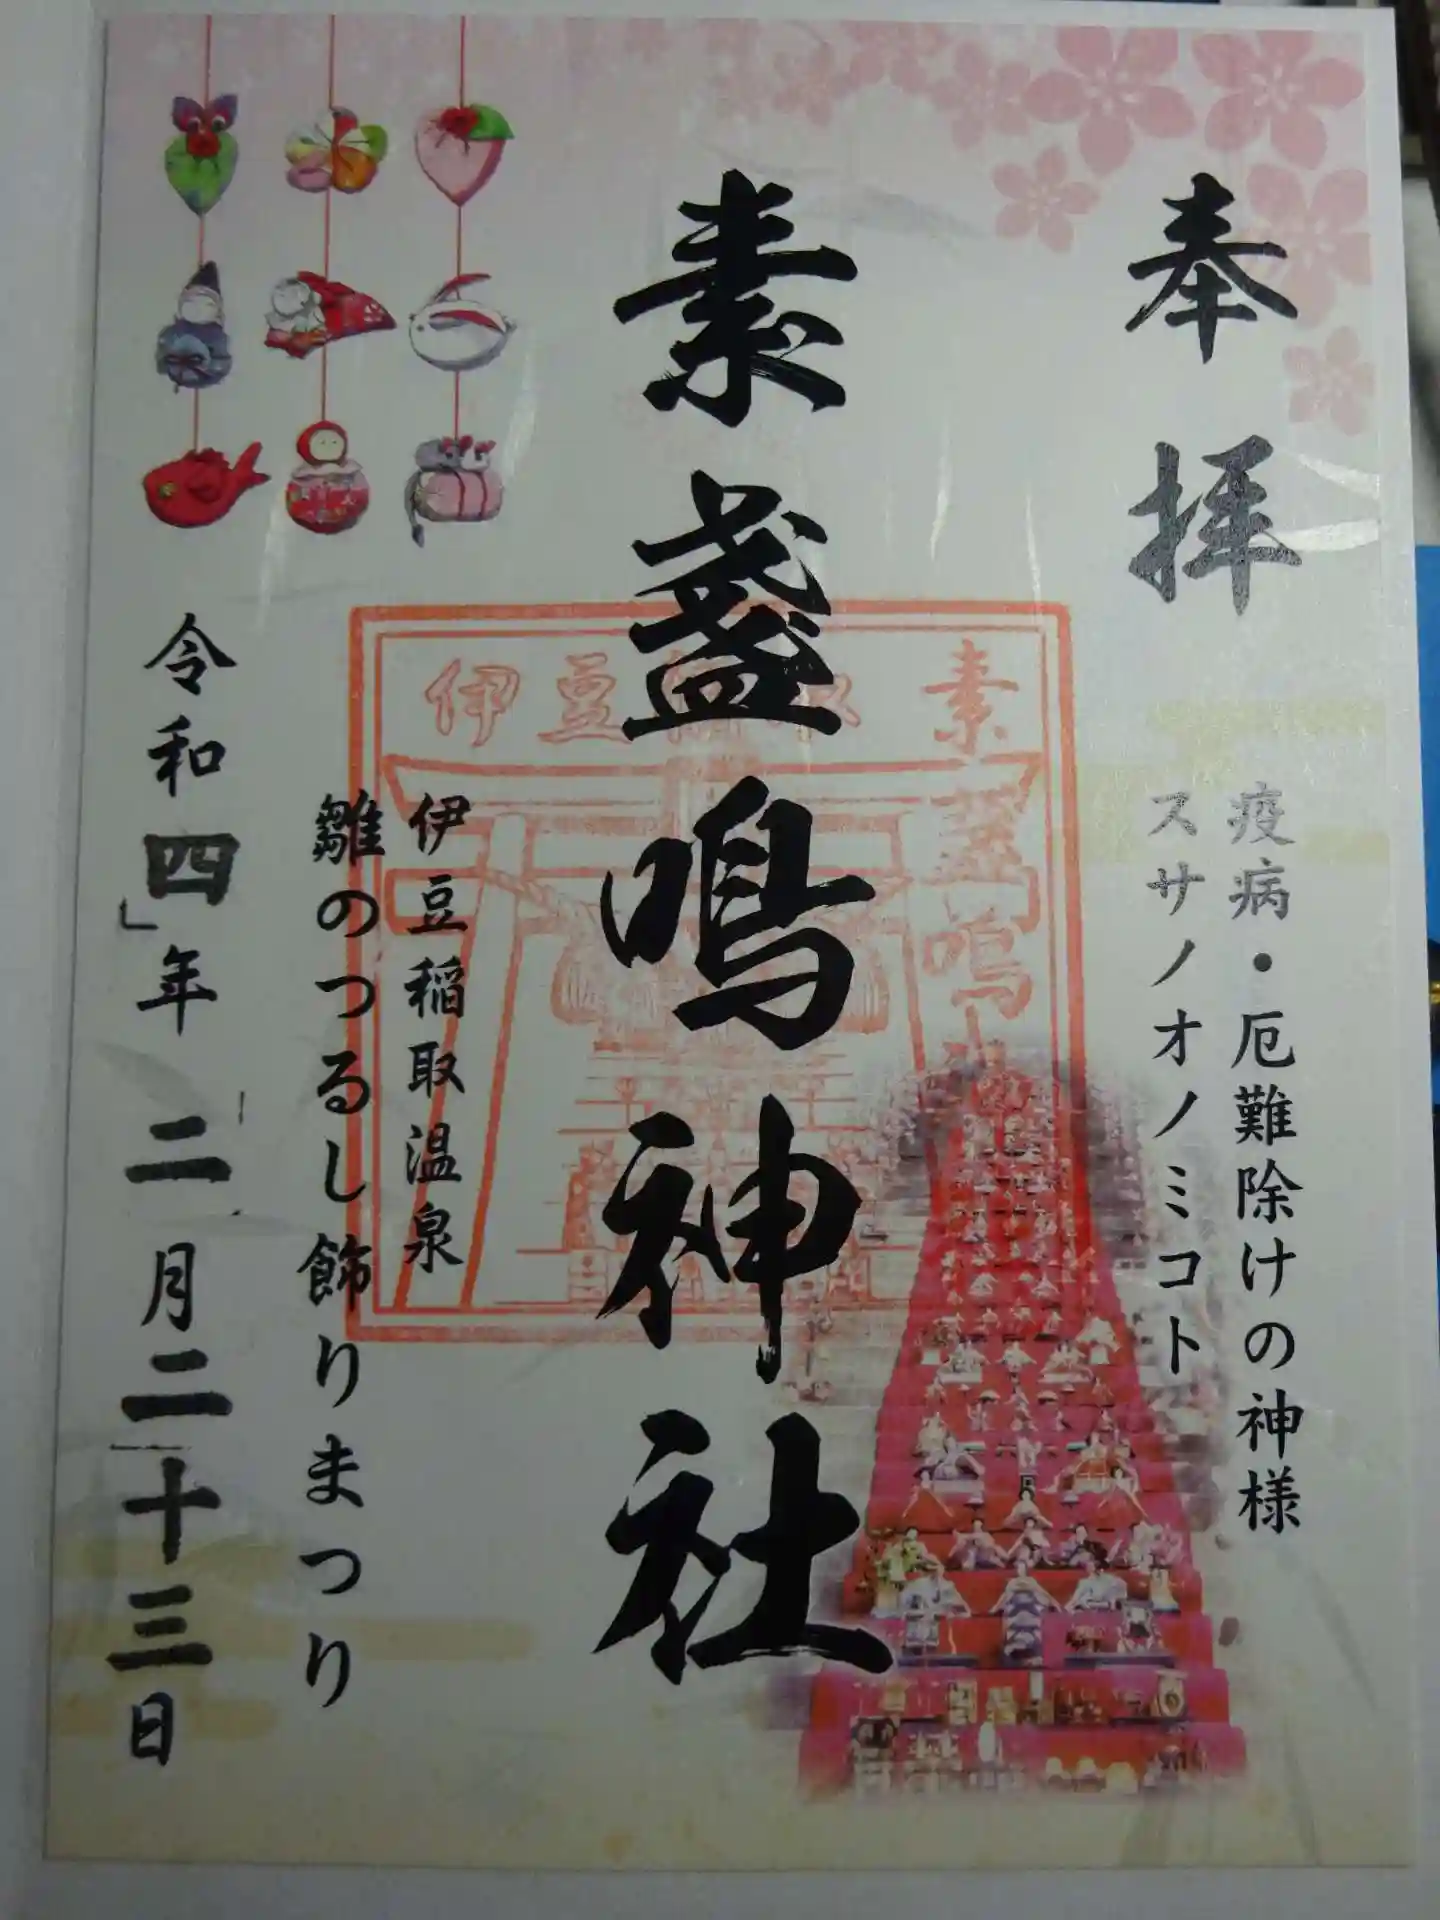 奉拝
疫病・厄難除けの神様
スサノオノミコト
素盞鳴神社
伊豆稲取温泉
雛のつるし飾りまつり
令和四年二月二十三日
素盞鳴神社
伊豆稲取